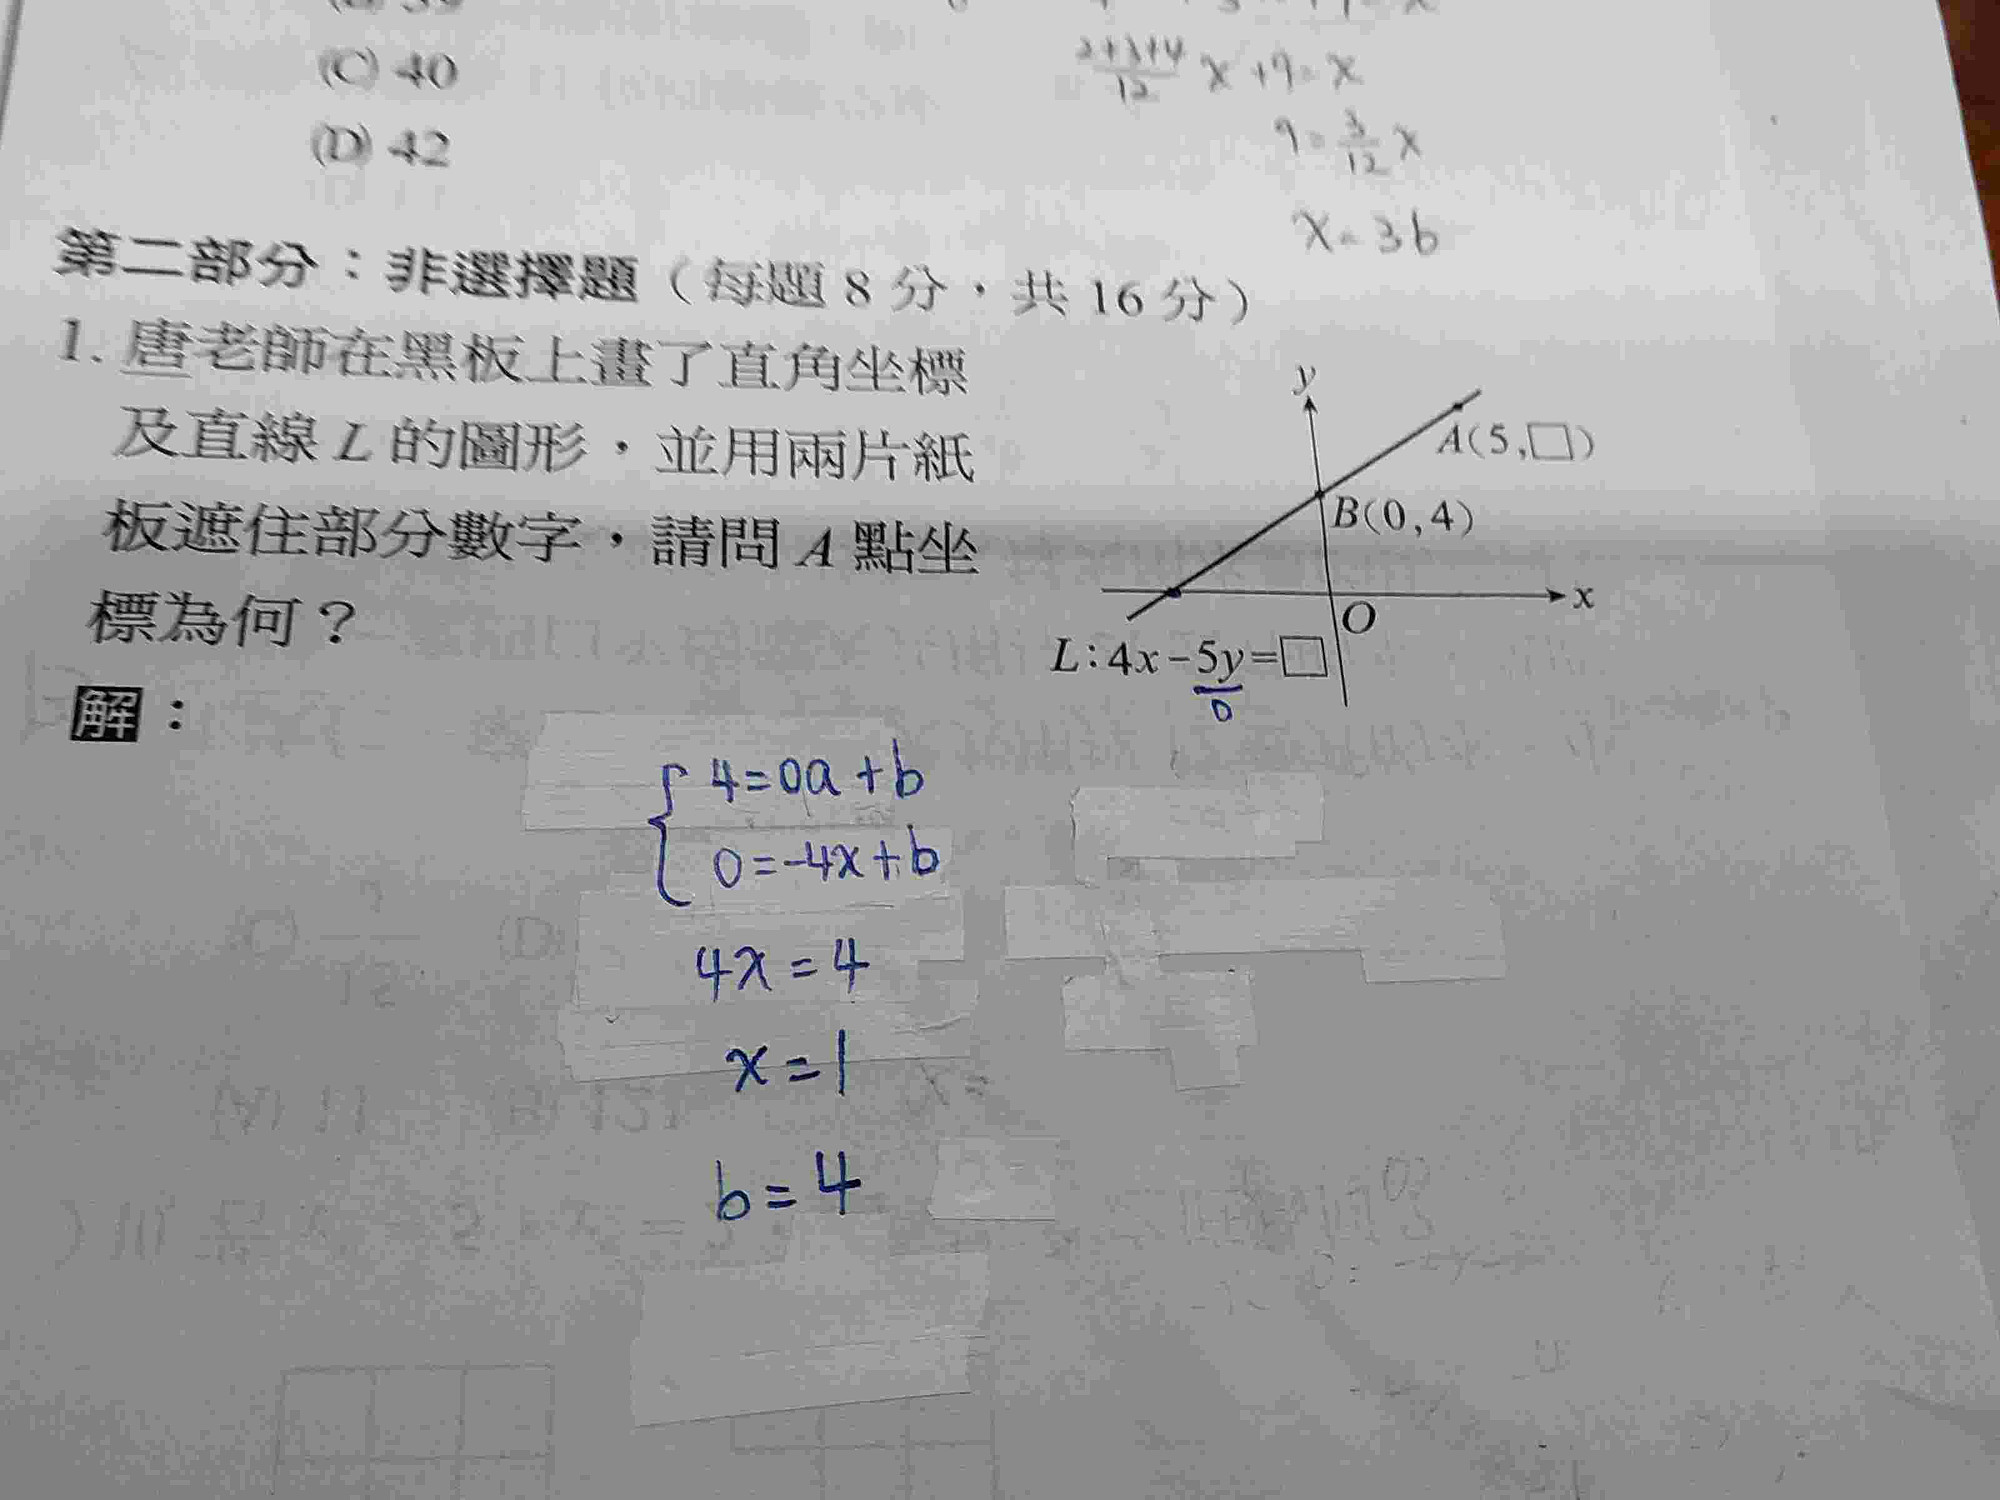 (C) 40
(D) 42
2+3+4/12 x+9=x
9=3/12 x
x=36
第二部分：非選擇題（每題 8 分，共 16 分）
1. 唐老師在黑板上畫了直角坐標
及直線 L 的圖形，並用兩片紙
板遮住部分數字，請問 A 點坐
標為何？
y
A(5,□)
B(0,4)
x
O
L:4x-5y=□
0
解：
4=0a+b
0=-4x+b
4x=4
x=1
b=4